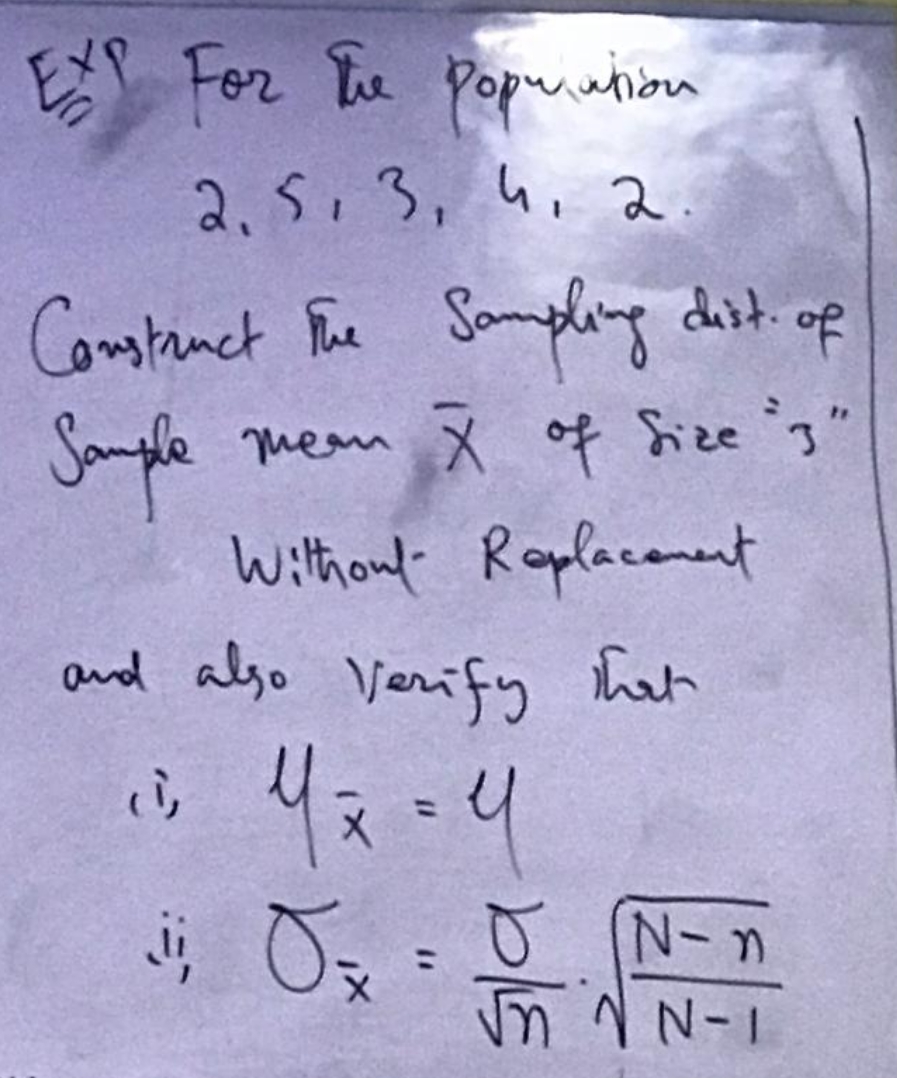 EXP For the population
2, 5, 3, 4, 2.
Construct the Sampling dist. of
Sample mean X̄ of Size "3"
Without Replacement
and also Verify that
(i) μ_X̄ = μ
ii) σ_X̄ = σ/√n · √((N-n)/(N-1))